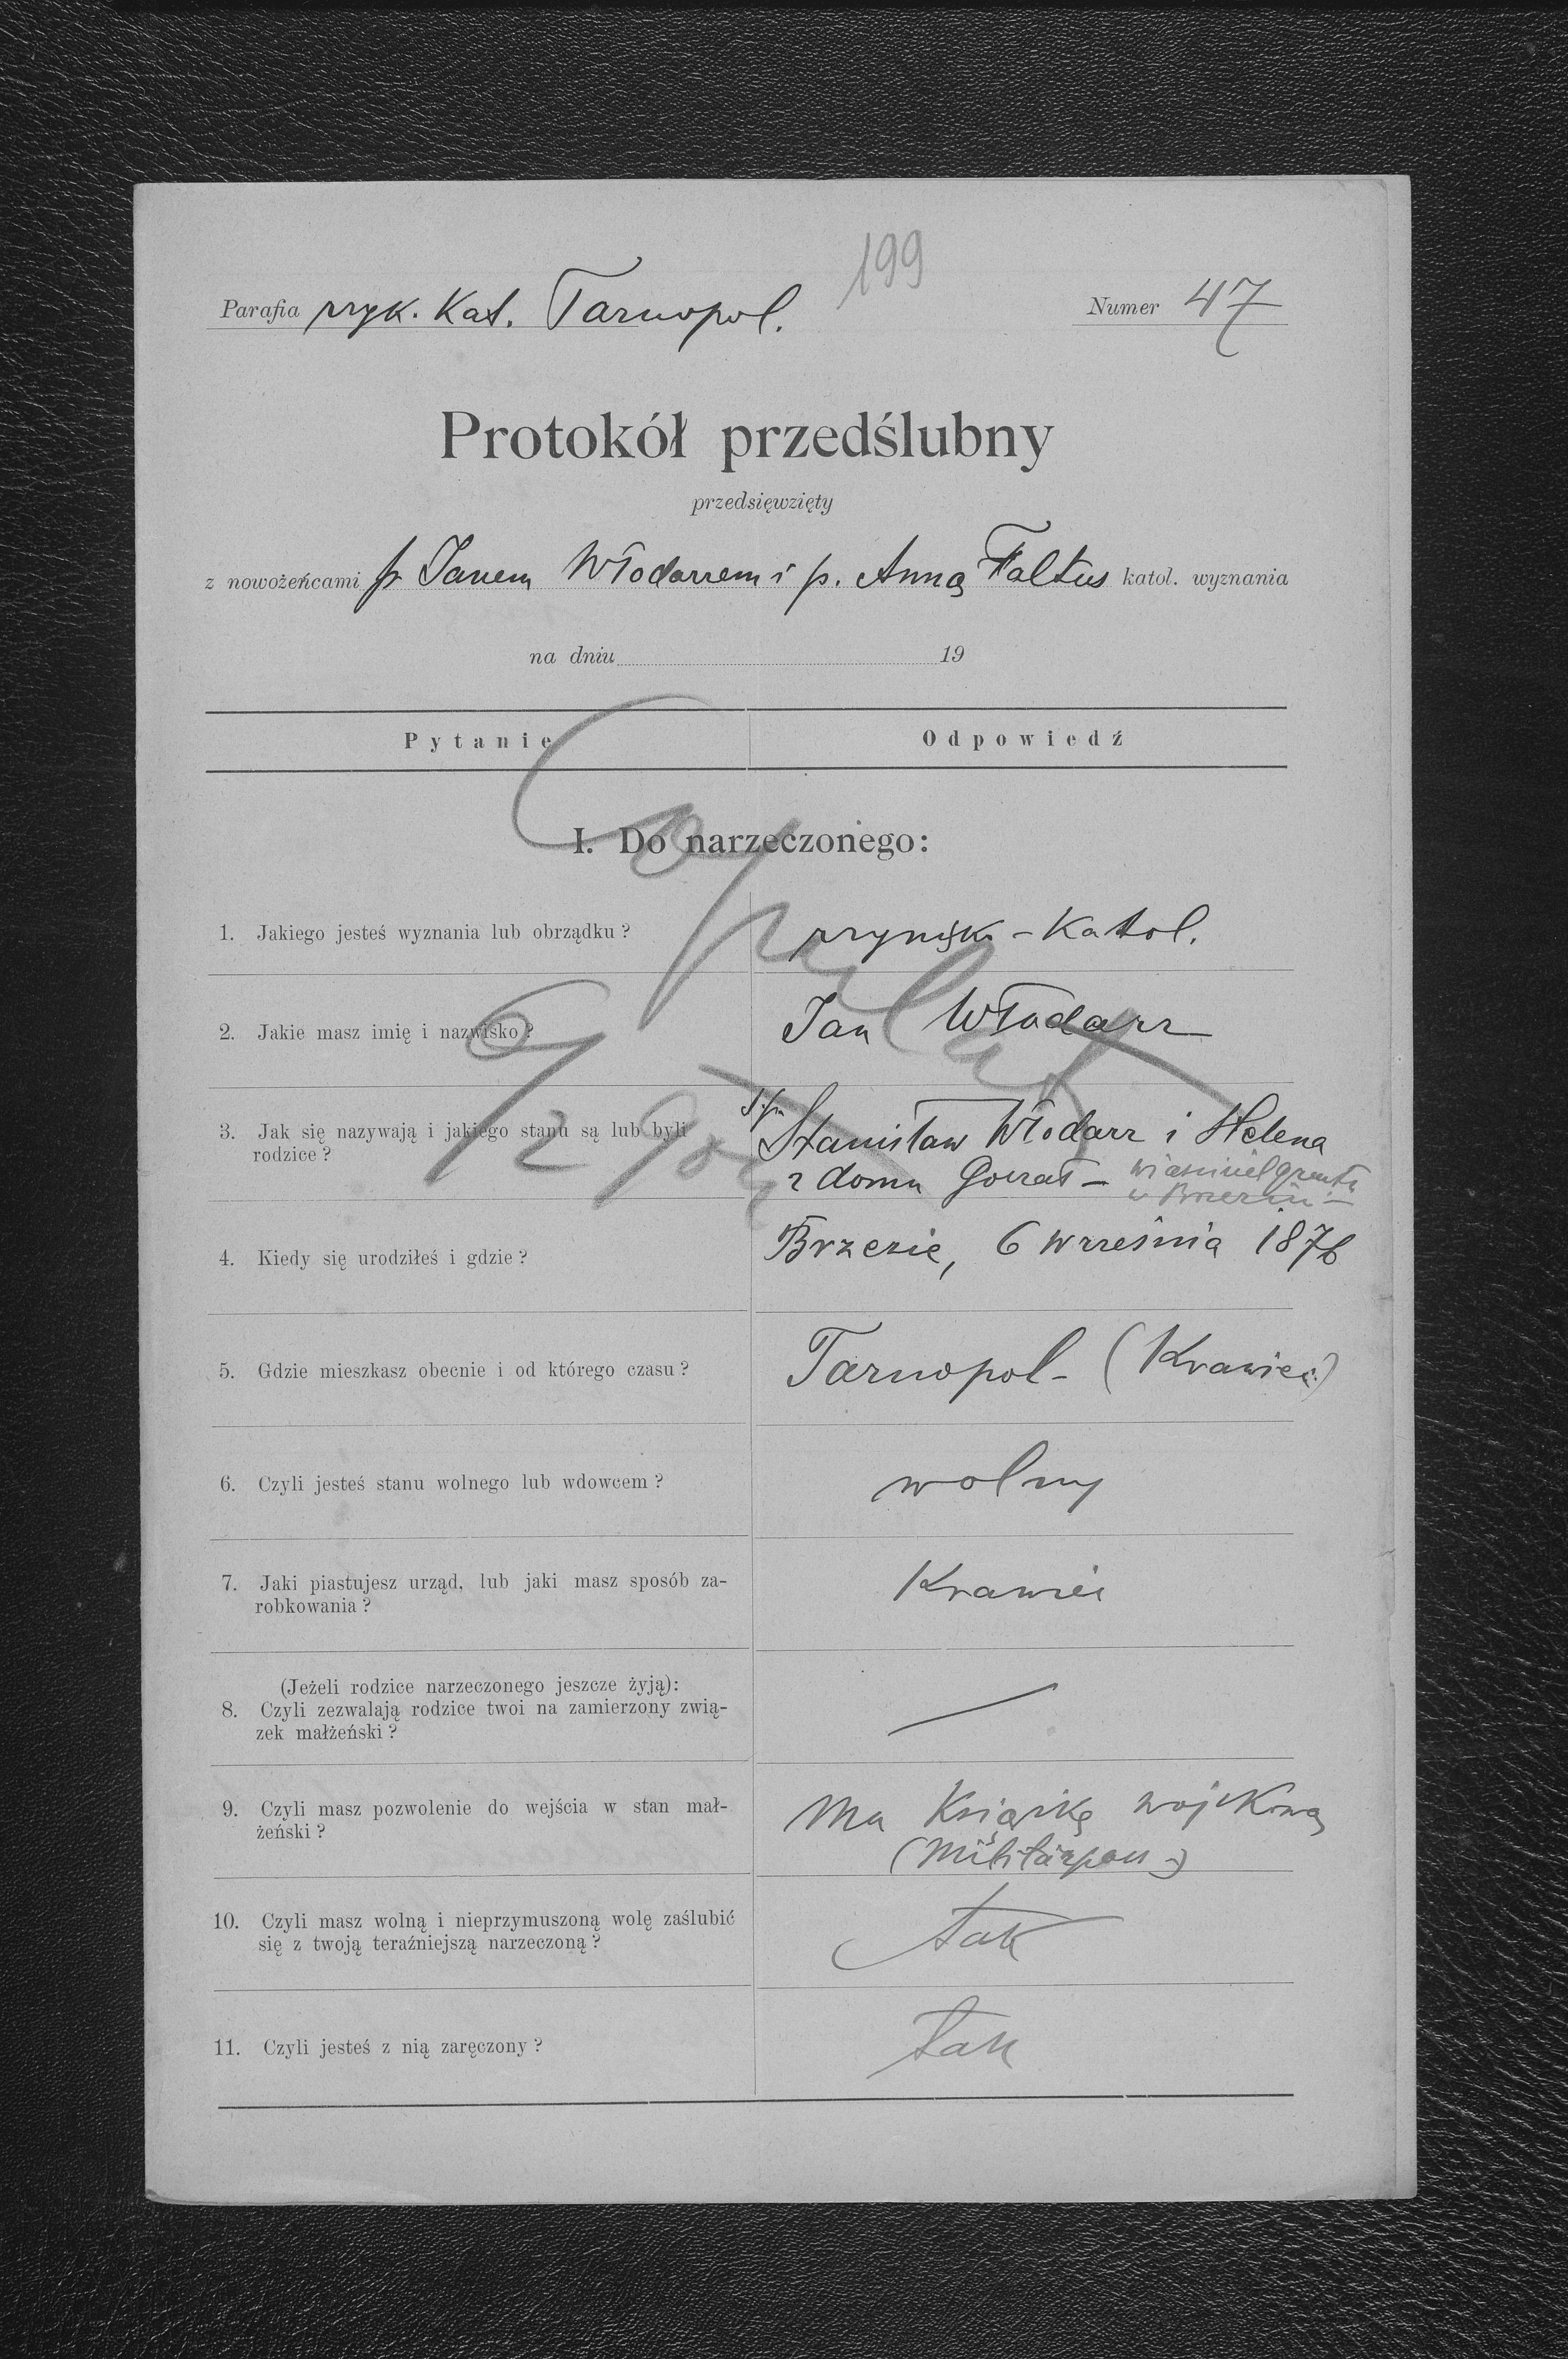 199
Parafia rzyk. Kat. Tarnopol. Numer 47
Protokół przedślubny
przedsięwzięty
z nowożeńcami p. Janem Włodarzem i p. Anną Faltus katol. wyznania
na dniu 19
Pytanie Odpowiedź
I. Do narzeczonego:
Copulat
1. Jakiego jesteś wyznania lub obrządku? rzymsk-Katol.
2. Jakie masz imię i nazwisko? Jan Włodarz
3. Jak się nazywają i jakiego stanu są lub byli
rodzice?
Stanisław Włodarz i Helena
z domu Gorrat - właściciel gruntu
w Brzeziu -
4. Kiedy się urodziłeś i gdzie? Brzezie, 6 września 1876
5. Gdzie mieszkasz obecnie i od którego czasu? Tarnopol - (Krawiec)
6. Czyli jesteś stanu wolnego lub wdowcem? wolny
7. Jaki piastujesz urząd, lub jaki masz sposób za-
robkowania?
Krawiec
(Jeżeli rodzice narzeczonego jeszcze żyją):
8. Czyli zezwalają rodzice twoi na zamierzony zwią-
zek małżeński?
—
9. Czyli masz pozwolenie do wejścia w stan mał-
żeński?
Ma Książkę wojskową
(Militärpass)
10. Czyli masz wolną i nieprzymuszoną wolę zaślubić
się z twoją teraźniejszą narzeczoną?
tak
11. Czyli jesteś z nią zaręczony? tak